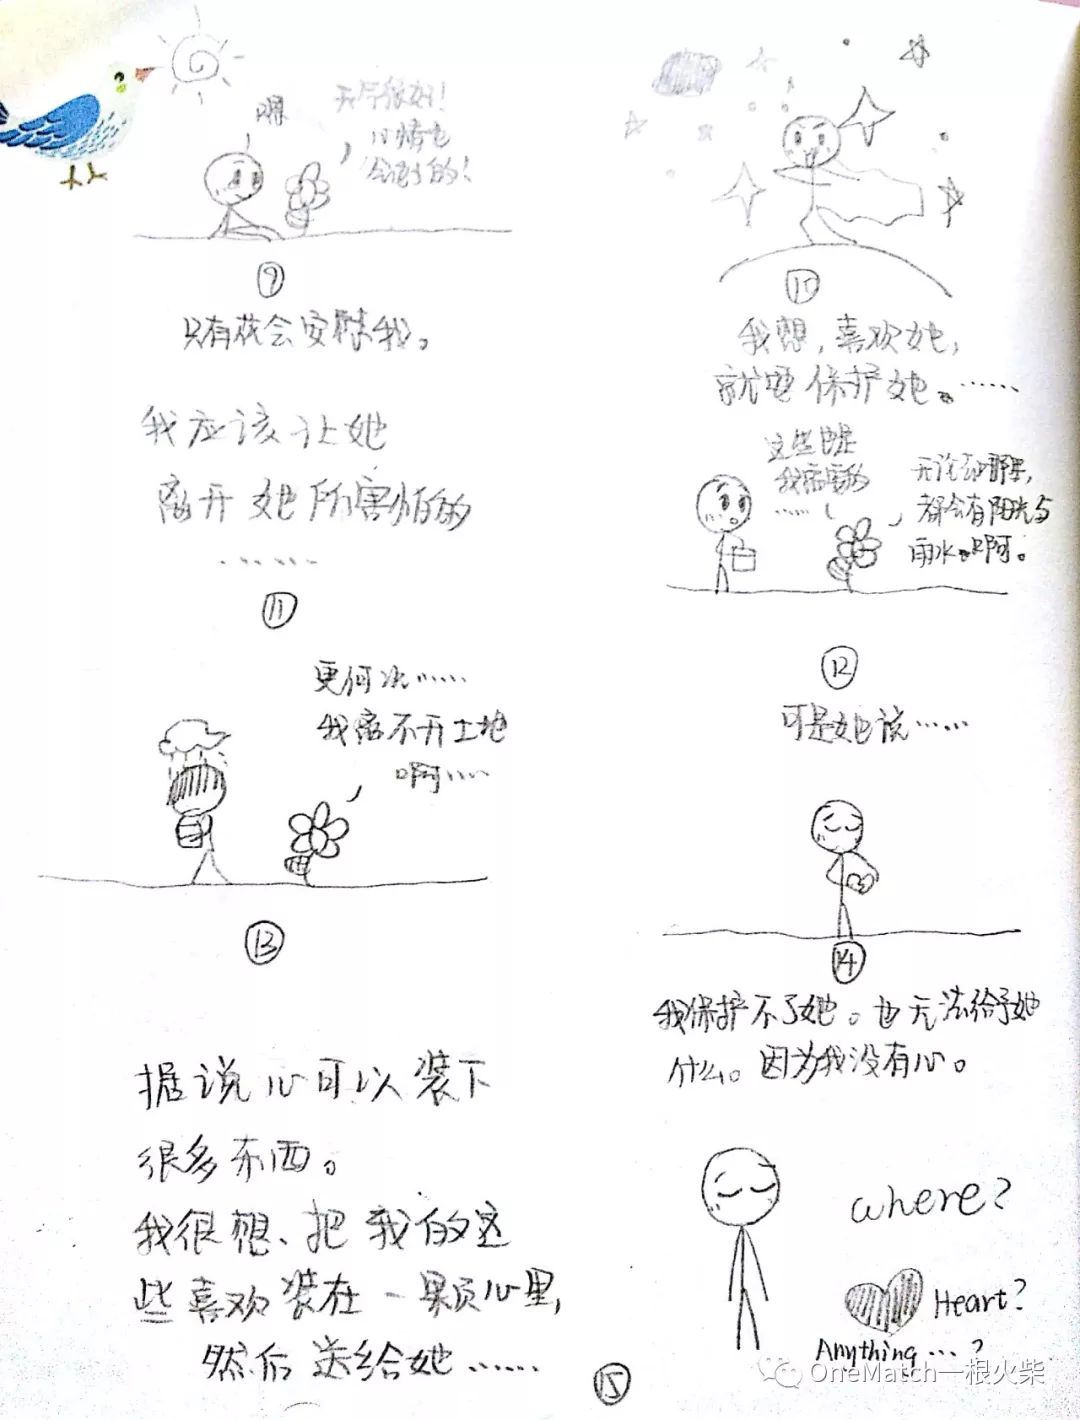 嘿
天气很好!
心情也
会好的!
⑨
只有花会安慰我。
我想，喜欢她，
就要保护她。……
我应该让她
离开她所害怕的
……
⑪
这些也是
我需要的
……
无论在哪里，
都会有阳光与
雨水 啊。
⑫
可是她说……
更何况……
我离不开土地
啊……
⑬
⑭
我保护不了她。也无法给予她
什么。因为我没有心。
据说心可以装下
很多东西。
我很想、把我的这
些喜欢装在一颗心里,
然后送给她……
⑮
where?
Heart?
Anything...?
OneMatch一根火柴